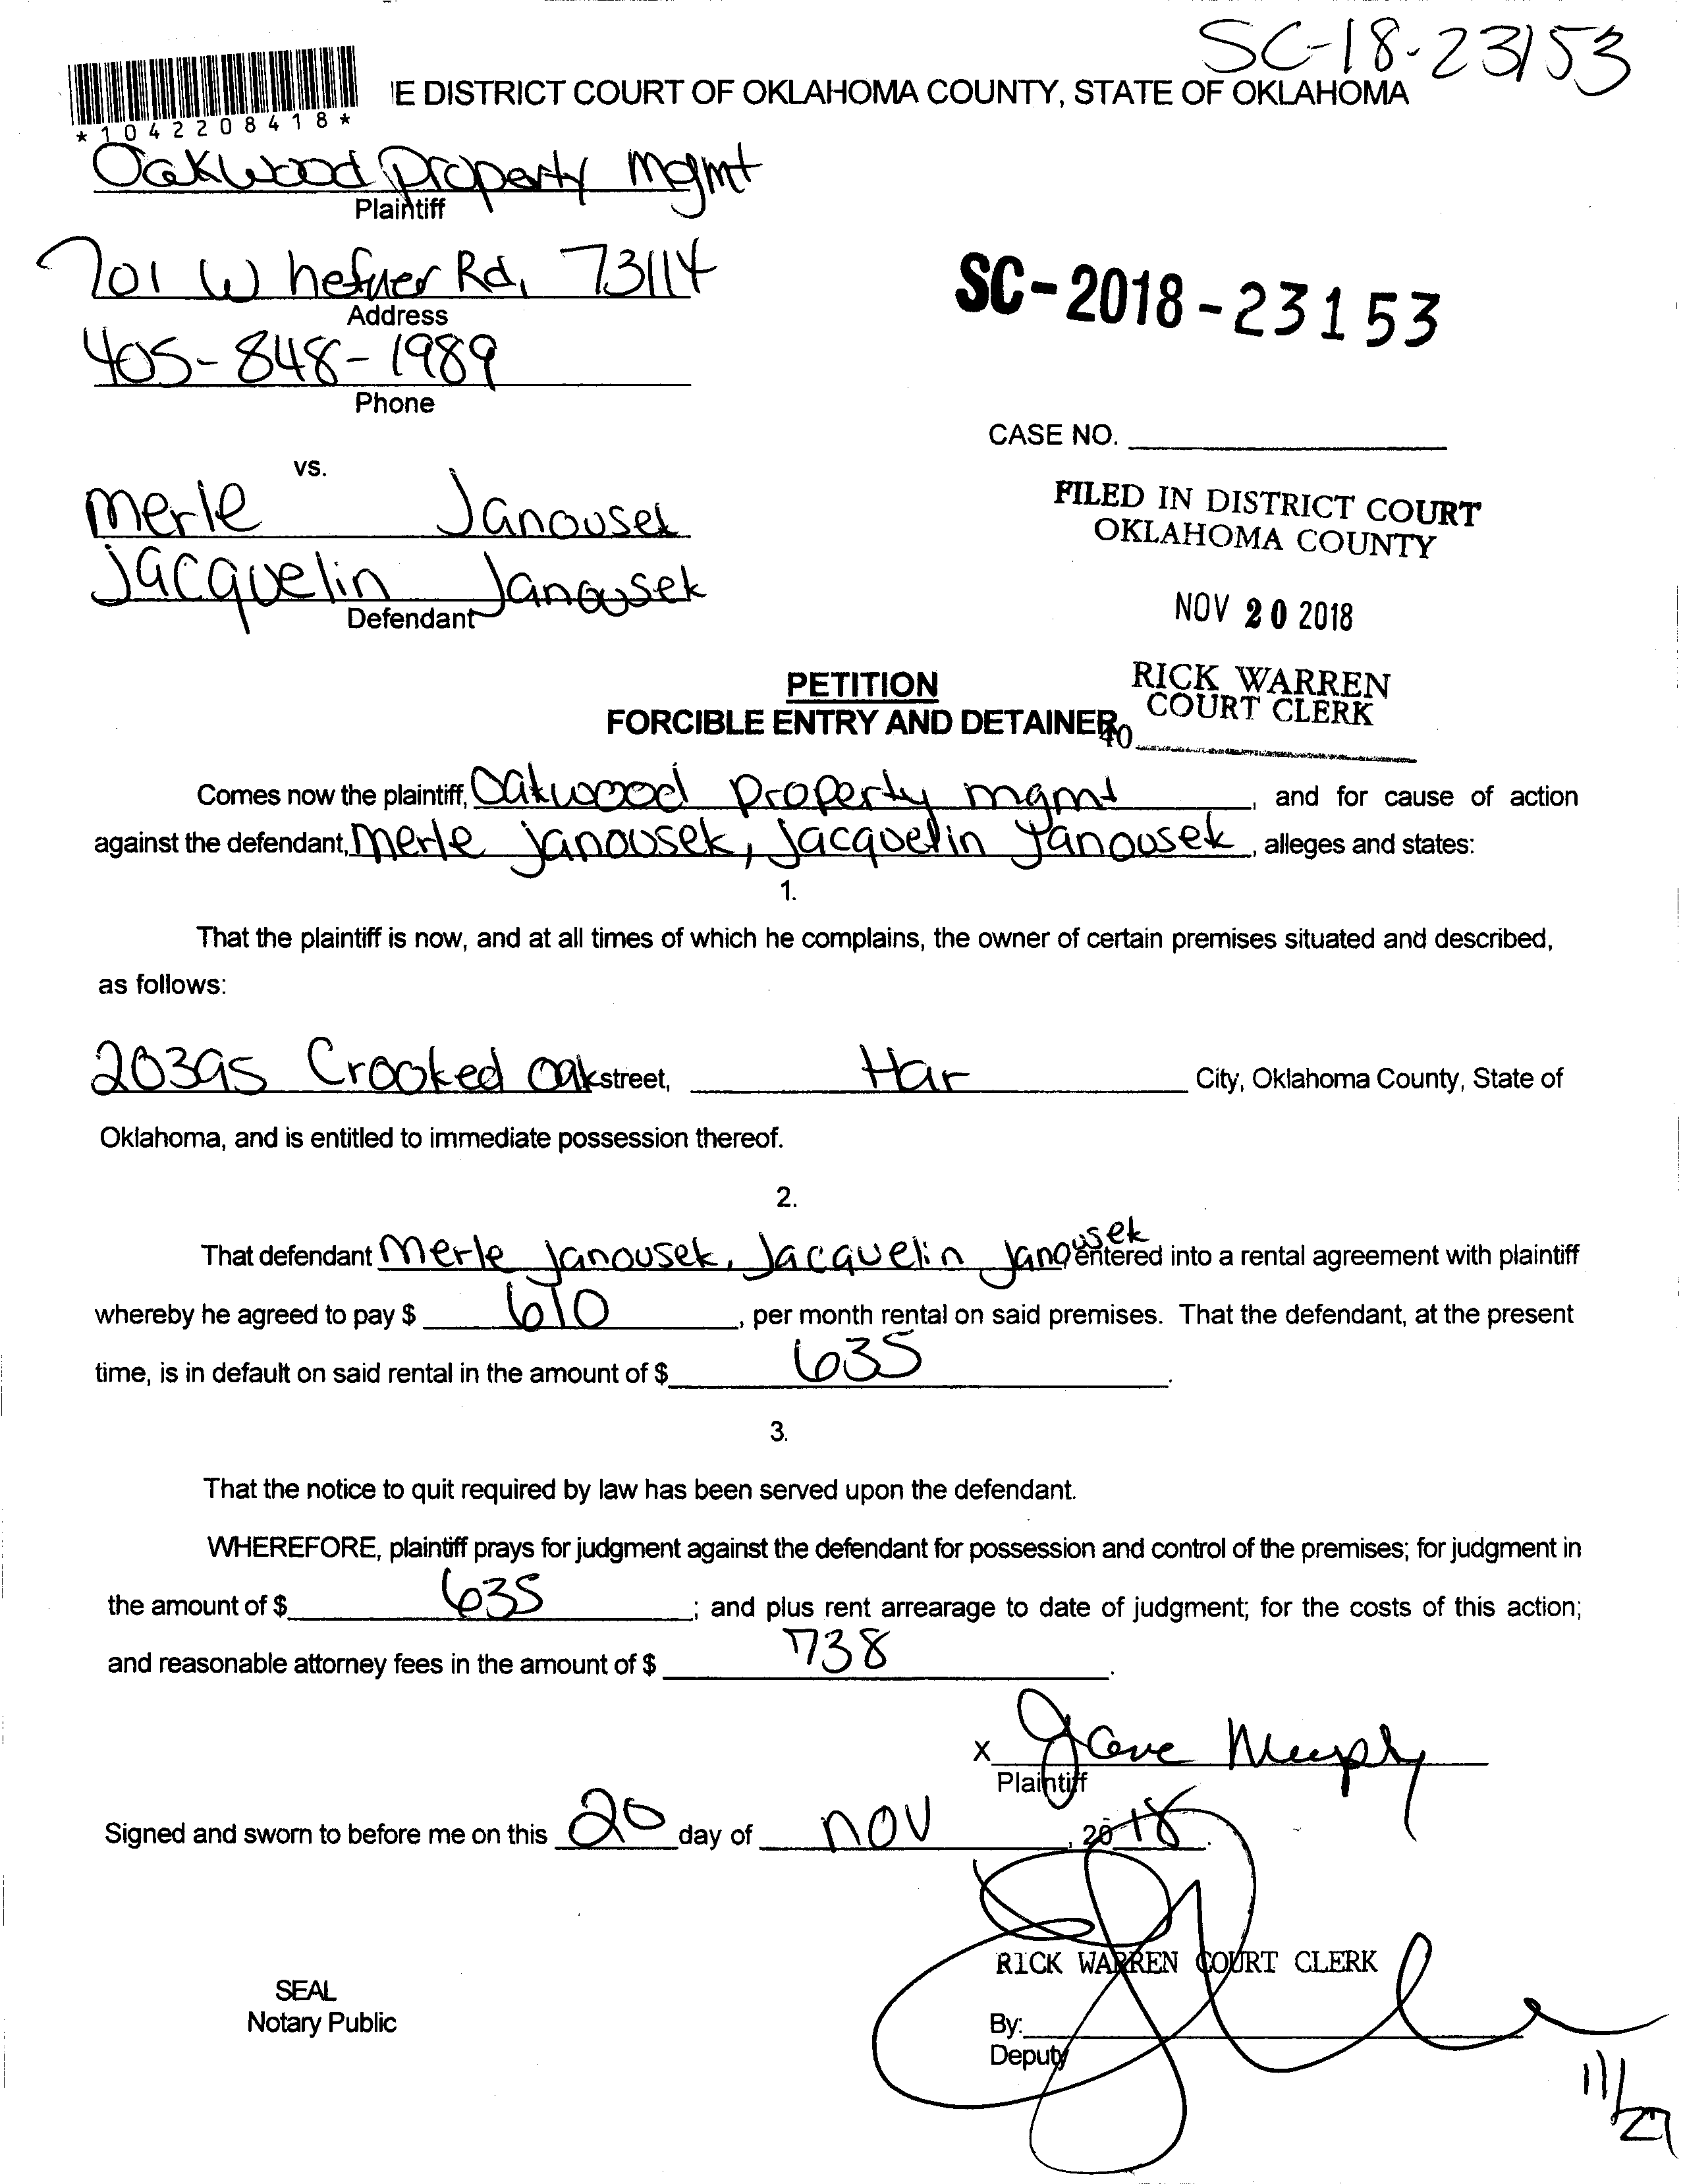 SC-18-23153
IE DISTRICT COURT OF OKLAHOMA COUNTY, STATE OF OKLAHOMA
*1042208418*
Oakwood Property Mgmt
Plaintiff
701 W hefner Rd, 73114
Address
SC-2018-23153
405-848-1989
Phone
CASE NO.
vs.
Merle Janousek
Jacquelin Janousek
Defendant
FILED IN DISTRICT COURT
OKLAHOMA COUNTY
NOV 20 2018
RICK WARREN
COURT CLERK
40
PETITION
FORCIBLE ENTRY AND DETAINER
Comes now the plaintiff, Oakwood Property mgmt, and for cause of action
against the defendant, Merle Janousek, Jacquelin Janousek, alleges and states:
1.
That the plaintiff is now, and at all times of which he complains, the owner of certain premises situated and described,
as follows:
20395 Crooked Oak street, Har City, Oklahoma County, State of
Oklahoma, and is entitled to immediate possession thereof.
2.
That defendant Merle Janousek, Jacquelin Janousek entered into a rental agreement with plaintiff
whereby he agreed to pay $ 610, per month rental on said premises. That the defendant, at the present
time, is in default on said rental in the amount of $ 635.
3.
That the notice to quit required by law has been served upon the defendant.
WHEREFORE, plaintiff prays for judgment against the defendant for possession and control of the premises; for judgment in
the amount of $ 635; and plus rent arrearage to date of judgment; for the costs of this action;
and reasonable attorney fees in the amount of $ 738.
X Murphy
Plaintiff
Signed and sworn to before me on this 20 day of nov, 2018.
RICK WARREN COURT CLERK
SEAL
Notary Public
By:
Deputy
11/27